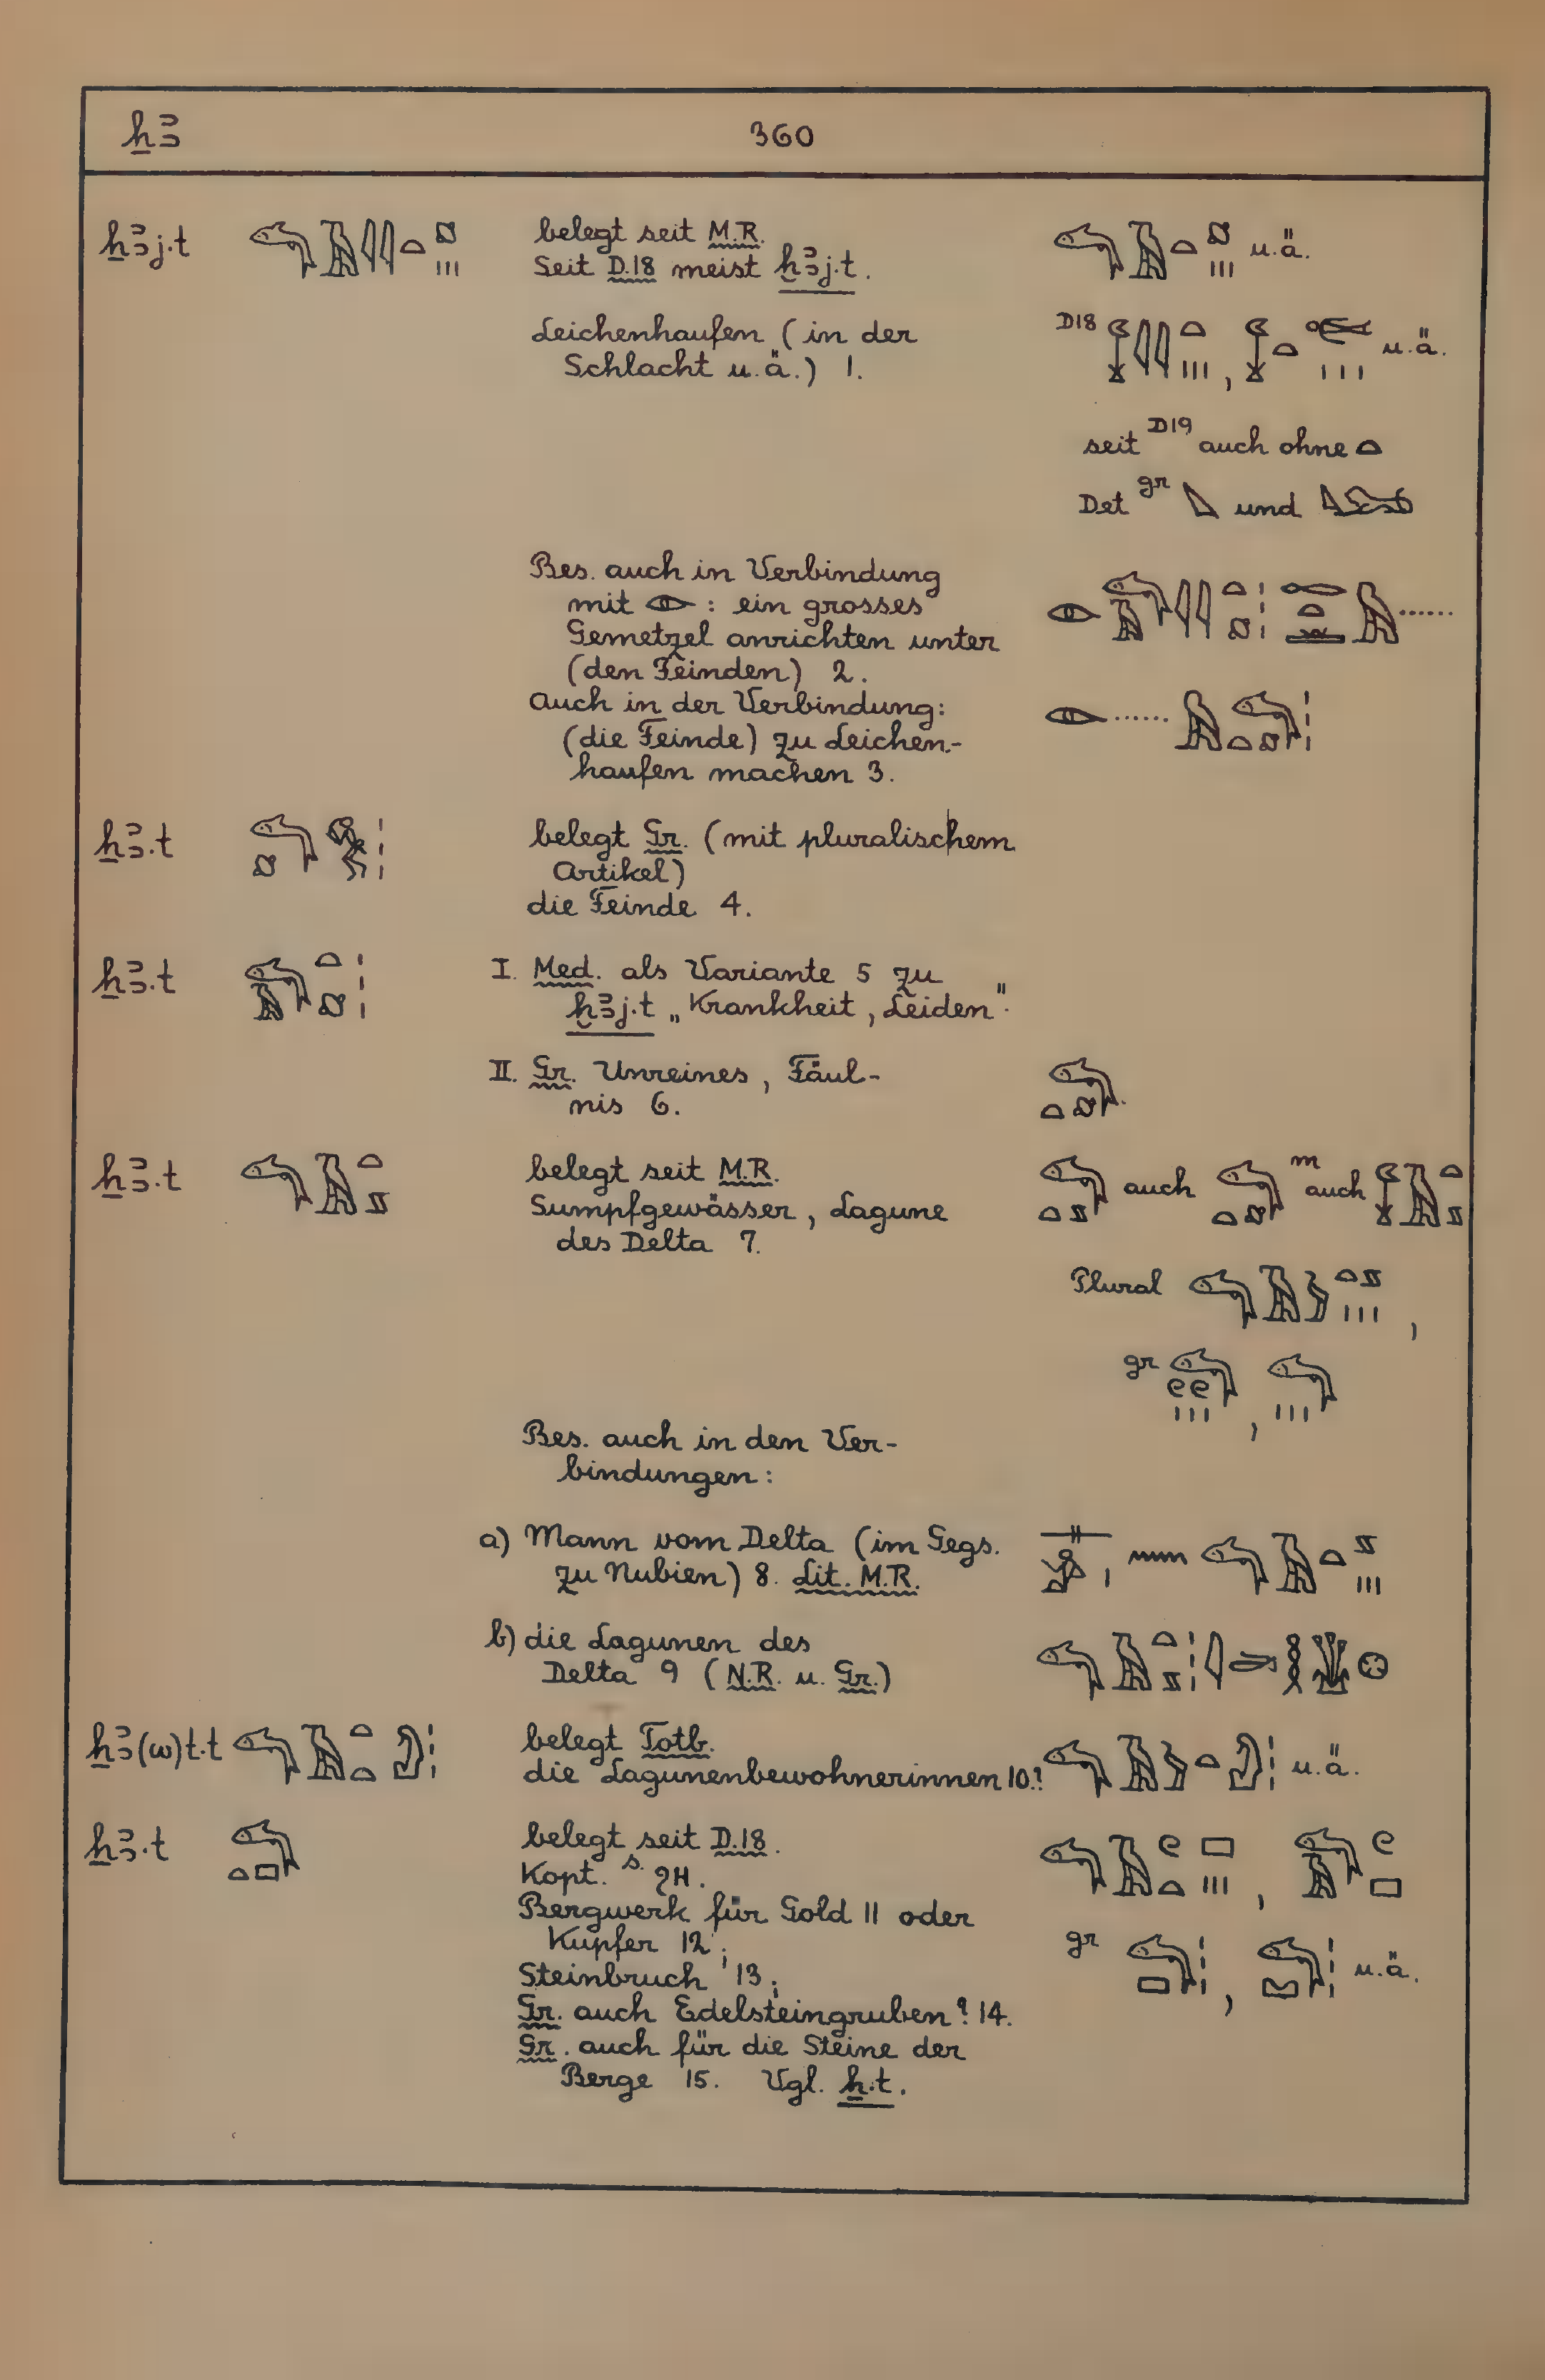 ẖꜣ 360
ẖꜣj.t belegt seit M.R. u.ä.
Seit D.18 meist ḫꜣj.t.
Leichenhaufen (in der D18
Schlacht u.ä.) 1. , u.ä.
seit D19 auch ohne
Det gr und
Bes. auch in Verbindung
mit : ein grosses
Gemetzel anrichten unter
(den Feinden) 2.
Auch in der Verbindung:
(die Feinde) zu Leichen-
haufen machen 3.
ẖꜣ.t belegt Gr. (mit pluralischem
Artikel)
die Feinde 4.
ẖꜣ.t I. Med. als Variante 5 zu
ḫꜣj.t „Krankheit, Leiden".
II. Gr. Unreines, Fäul-
nis 6.
ẖꜣ.t belegt seit M.R. auch m auch
Sumpfgewässer, Lagune
des Delta 7.
Plural ,
gr ,
Bes. auch in den Ver-
bindungen:
a) Mann vom Delta (im Gegs.
zu Nubien) 8. Lit. M.R.
b) die Lagunen des
Delta 9 (N.R. u. Gr.)
ẖꜣ(w)t.t belegt Totb.
die Lagunenbewohnerinnen 10.? u.ä.
ẖꜣ.t belegt seit D.18. ,
Kopt. s. ϩⲏ.
Bergwerk für Gold 11 oder
Kupfer 12; gr , u.ä.
Steinbruch 13;
Gr. auch Edelsteingruben? 14.
Gr. auch für die Steine der
Berge 15. Vgl. ẖ.t.